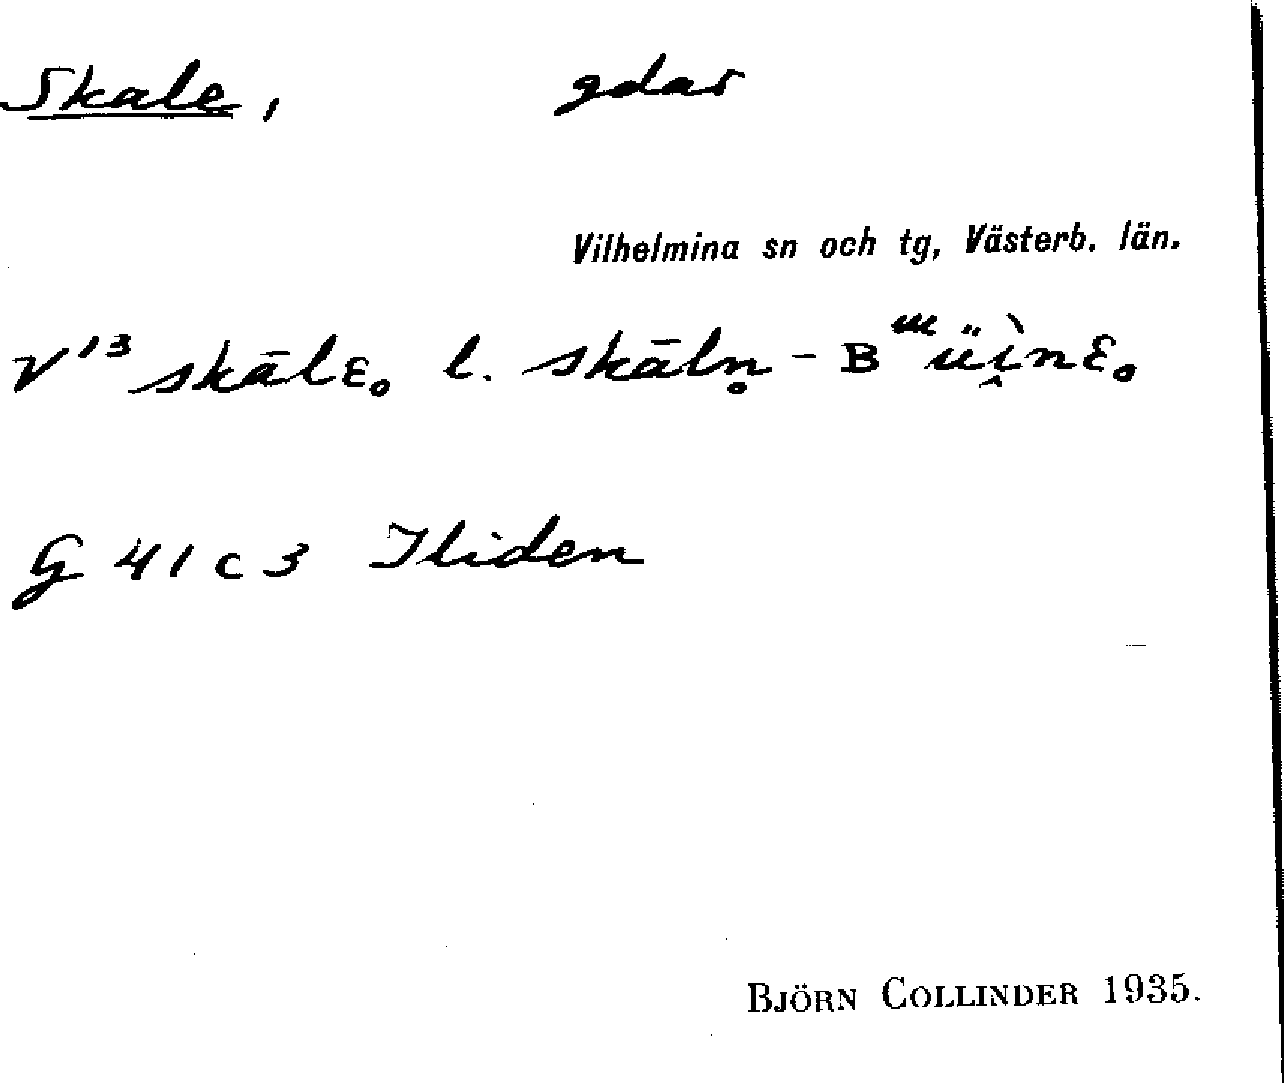 Skale, gdar
Vilhelmina sn och tg, Västerb. län.
V¹³ skālɛ̥ l. skāln̥ - ʙᵚüì̭nɛ̥
G 41 c 3 Iliden
BJÖRN COLLINDER 1935.